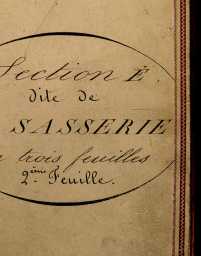 Section E.
dite de
SASSERIE
trois feuilles
2ème Feuille.